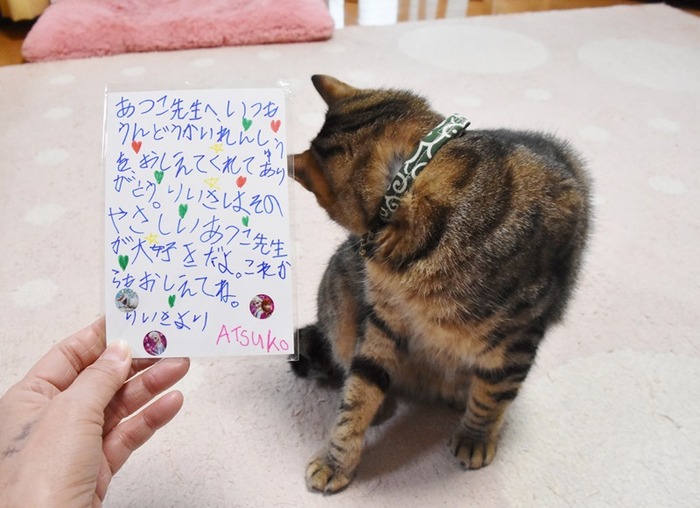 あつこ先生へ、いつも
うんどうかいれんしゅう
を、おしえてくれてあり
がとう。りいさはその
やさしいあつこ先生
が大好きだよ。これか
らもおしえてね。
りいさより
ATSUKO